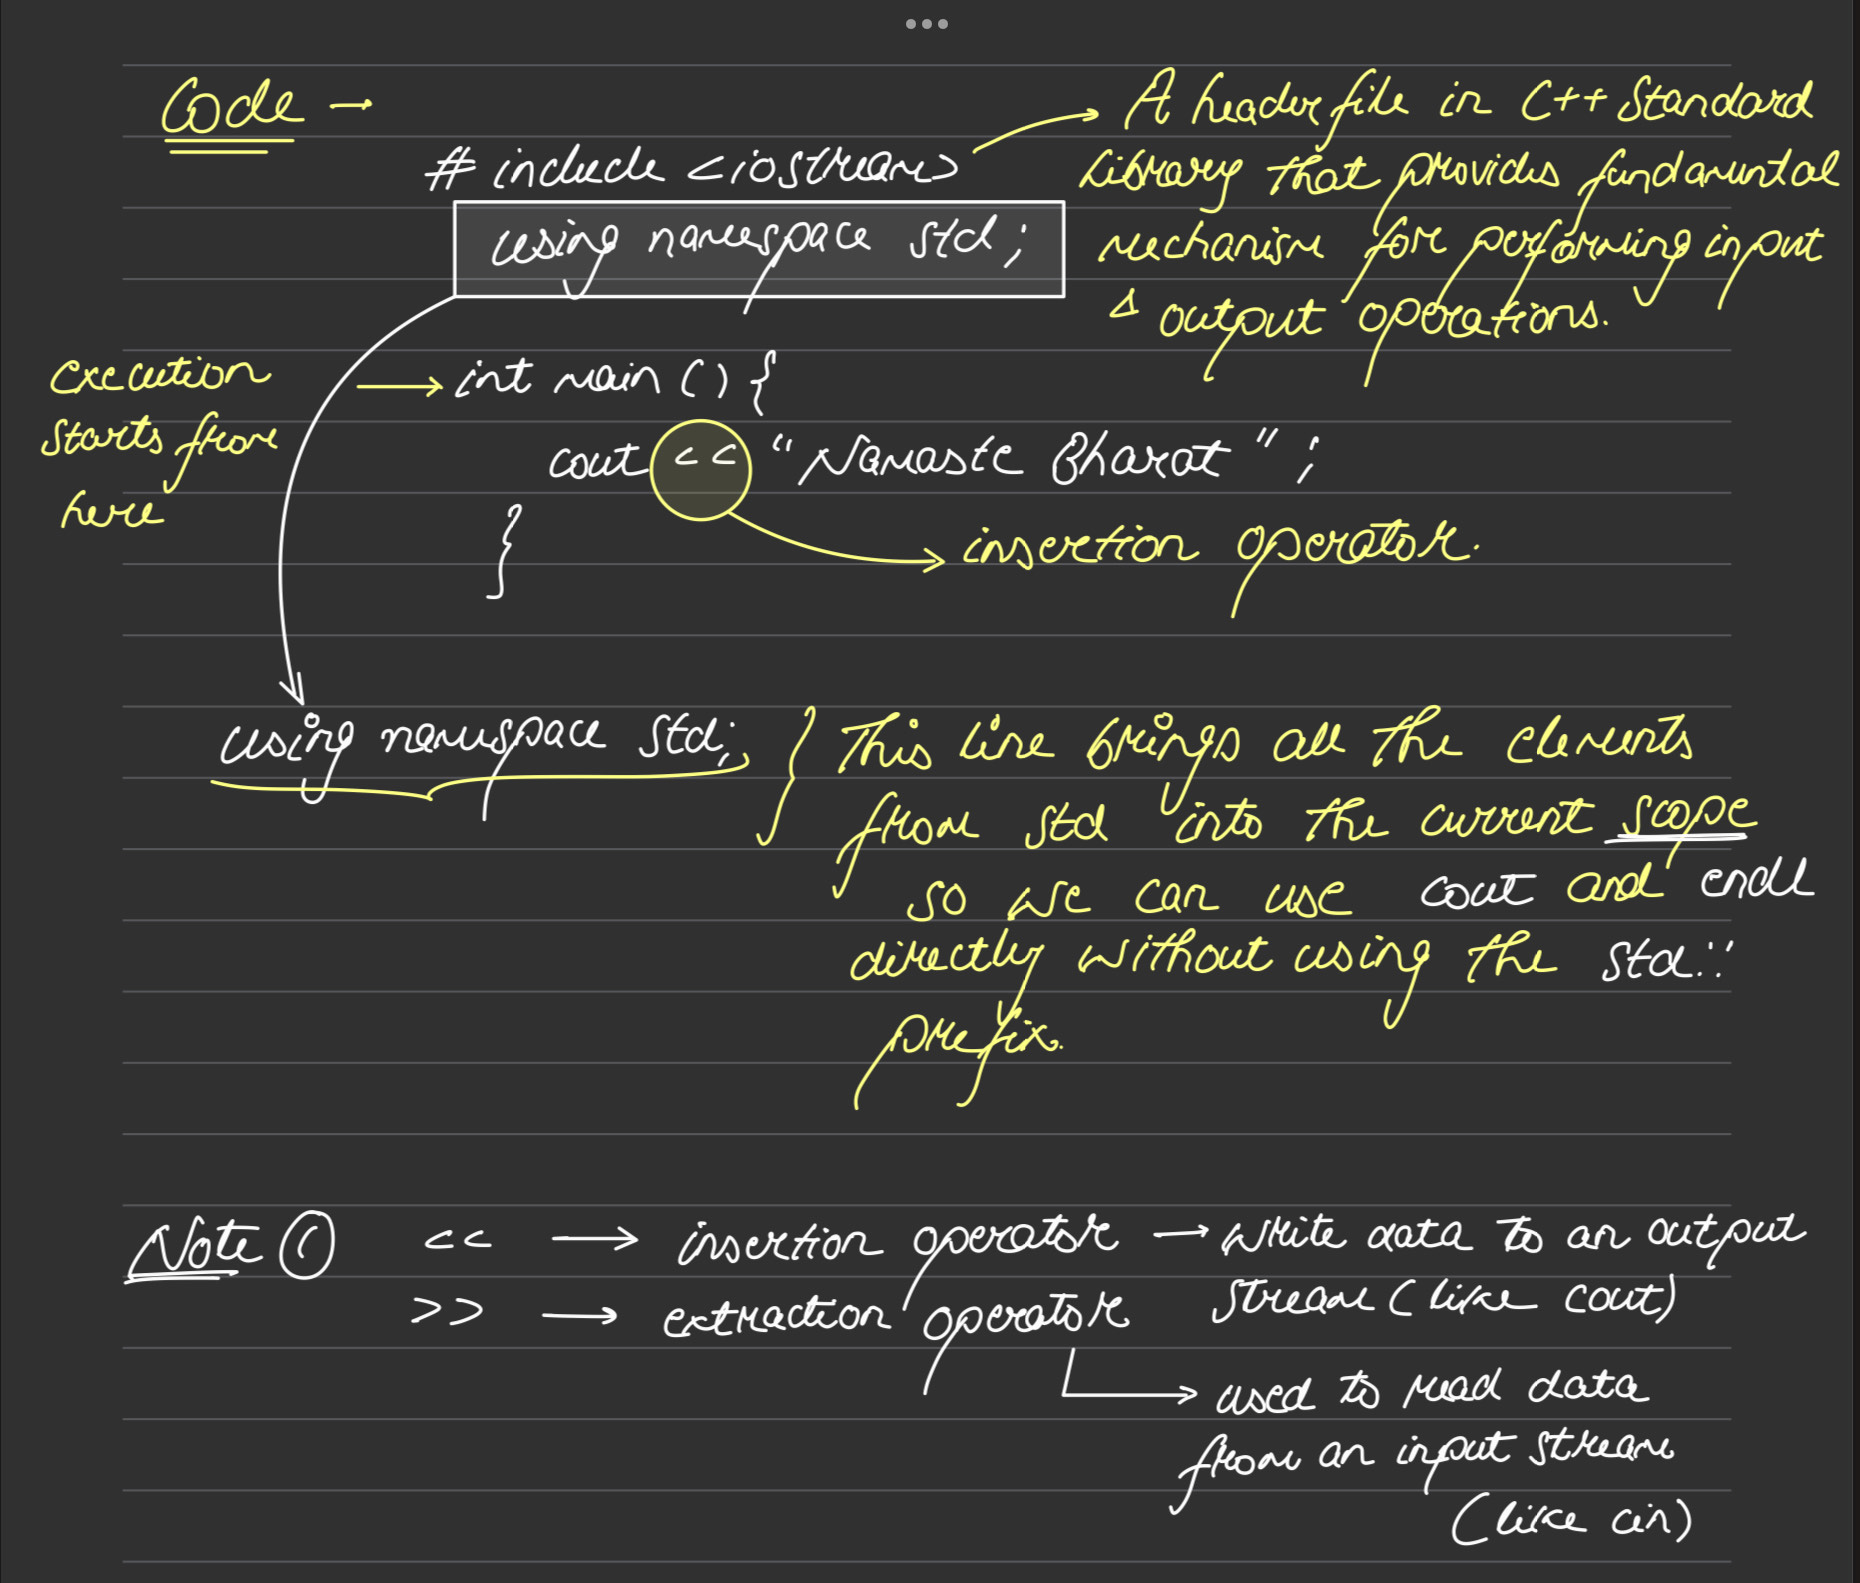 Code →
# include <iostream>
using namespace std;
A header file in C++ Standard
Library that provides fundamental
mechanism for performing input
& output operations.
execution
starts from
here
→ int main () {
cout << "Namaste Bharat" ;
}
insertion operator.
using namespace std;
This line brings all the elements
from std into the current scope
so we can use cout and endl
directly without using the std::
prefix.
Note ① << → insertion operator → write data to an output
stream (like cout)
>> → extraction operator
used to read data
from an input stream
(like cin)